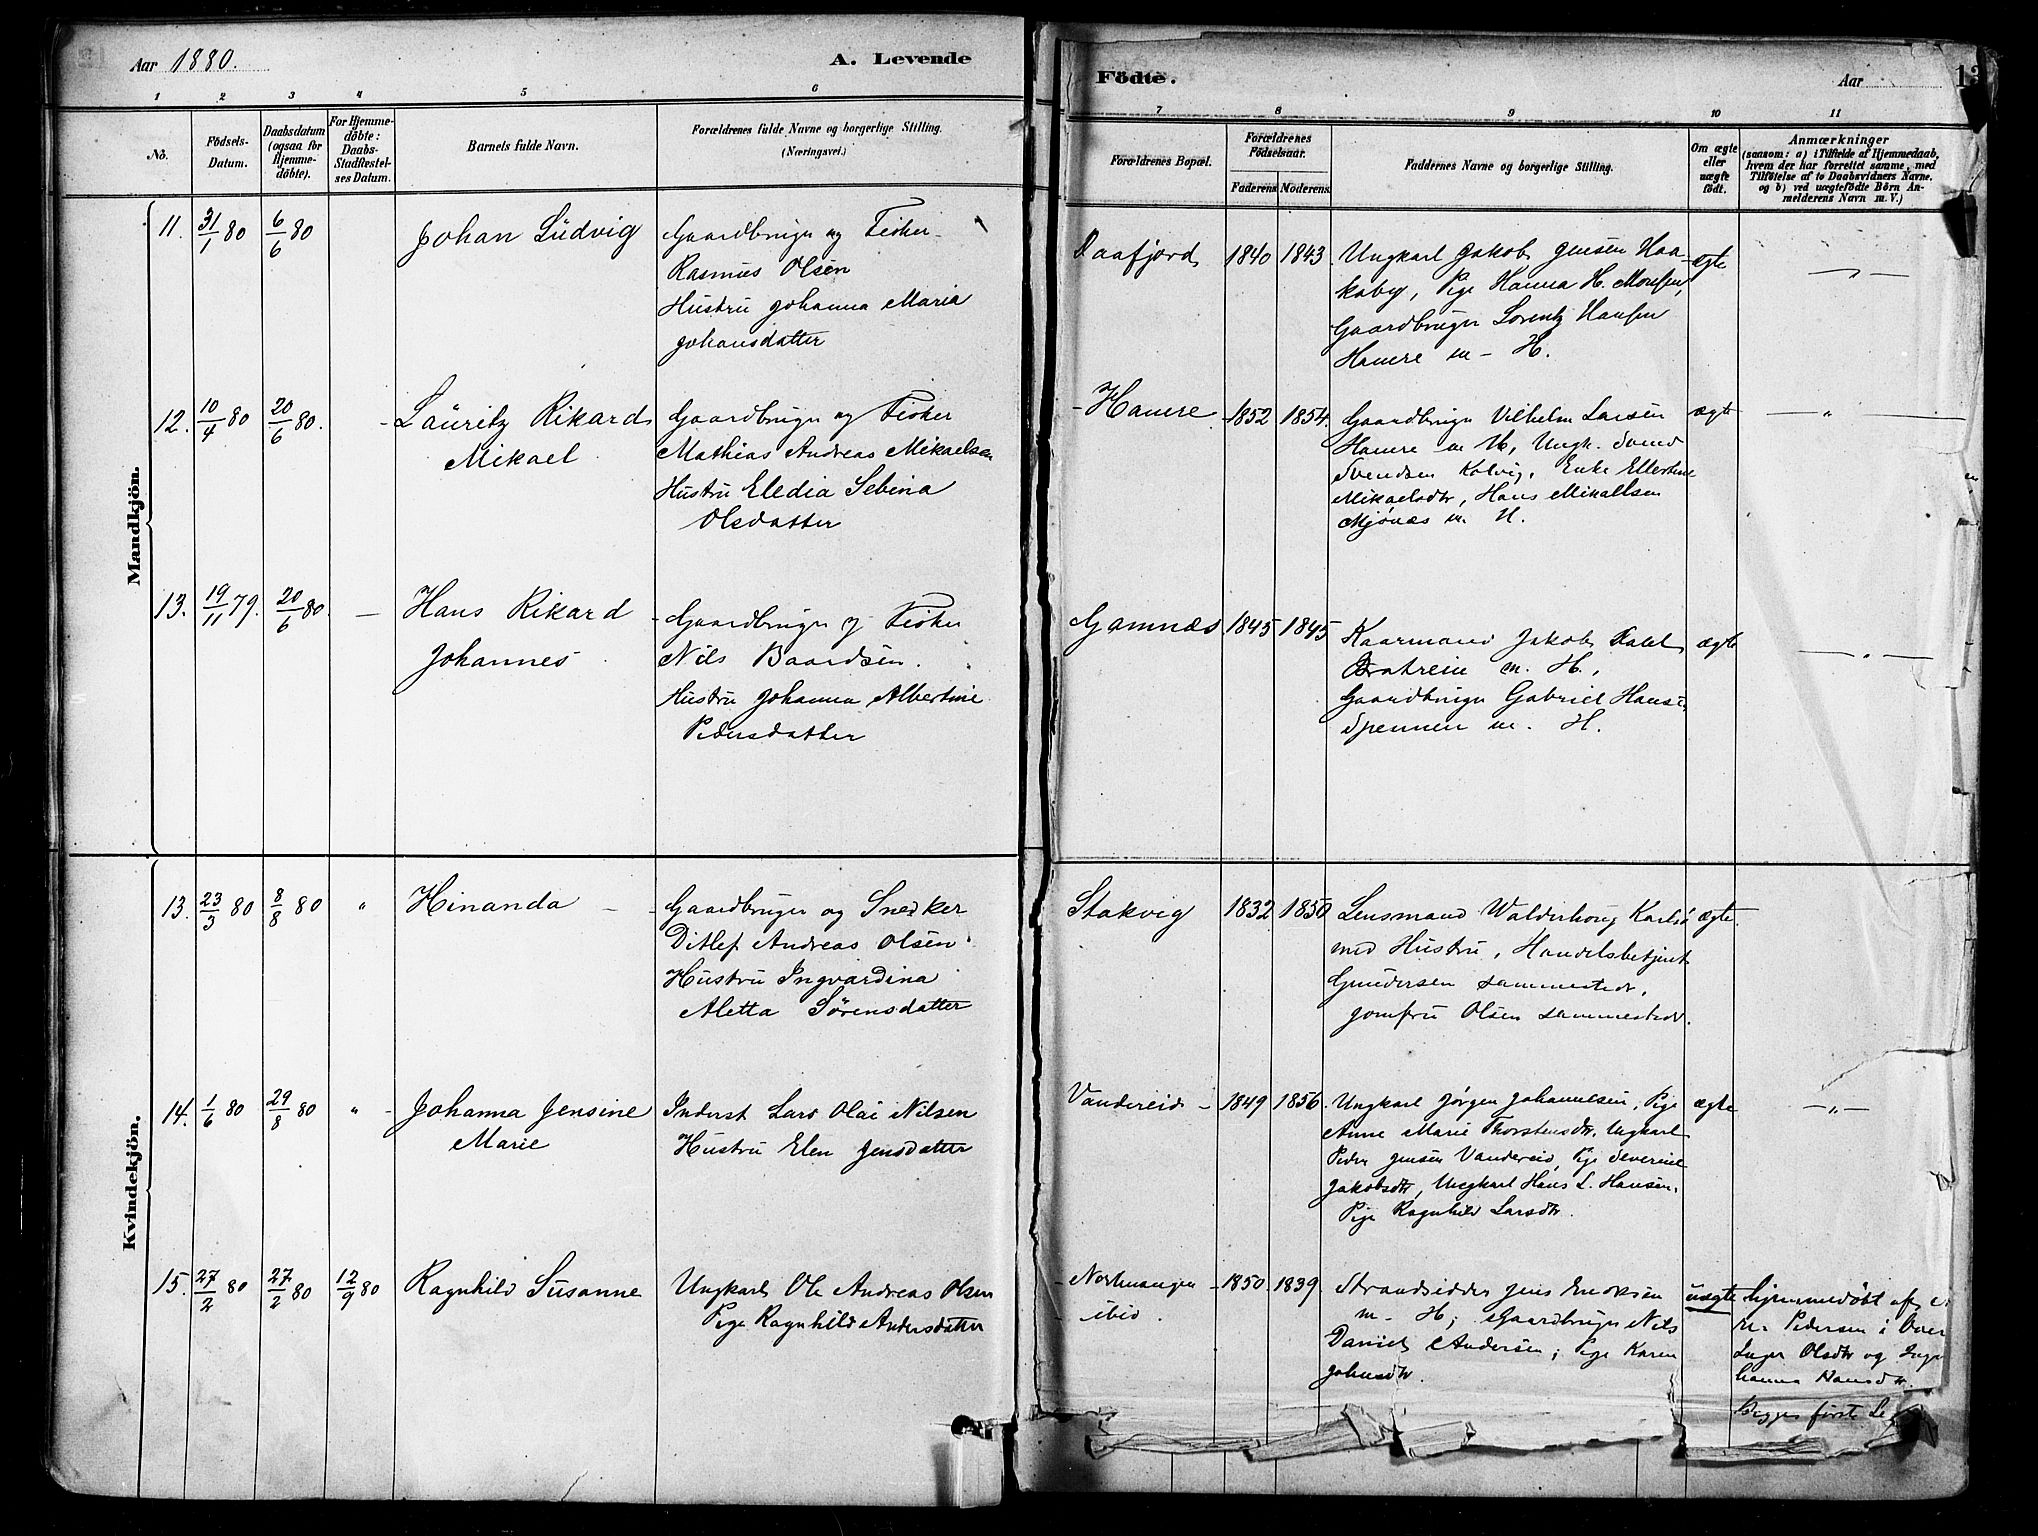 Aar 1880.
A. Levende
1 2 3 4 5 6
No.
Födsels-
Datum.
Daabsdatum
(ogsaa for
Hjemme-
döbte).
For Hjemme-
döbte:
Daabs-
Stadfestel-
ses Datum.
Barnets fulde Navn.
Forældrenes fulde Navne og borgerlige Stilling.
(Næringsvei.)
Mandkjön.
11. 31/1 80 6/6 80 Johan Ludvig
Gaardbruger og Fisker
Rasmus Olsen
Hustru Johanna Maria
Johansdatter
12. 10/4 80 20/6 80. - Lauritz Rikard
Mikael
Gaardbruger og Fisker
Mathias Andreas Mikaelsen
Hustru Eledia Sebina
Olsdatter
13. 19/11 79. 20/6 80. — Hans Rikard
Johannes
Gaardbruger og Fisker
Nils Baardsen.
Hustru Johanna Albertine
Pedersdatter
Kvindekjön.
13. 23/3 80 8/8 80 " Hinanda
Gaardbruger og Snedker
Ditlef Andreas Olsen
Hustru Ingvardina
Aletta Sørensdatter
14. 1/6 80 29/8 80 " - Johanna Jensine
Marie
Inderst Lars Olai Nilsen
Hustru Elen Jensdatter
15. 27/2 80 27/2 80 12/9 80 Ragnhild Susanne
Ungkarl Ole Andreas Olsen
Pige Ragnhild Andersdatter
Födte.
Aar
13
7 8 9 10 11
Forældrenes Bopæl.
Forældrenes
Födselsaar.
Faderens. Moderens.
Faddernes Navne og borgerlige Stilling.
Om ægte
eller
uægte
födt.
Anmærkninger
(saasom: a) i Tilfælde af Hjemmedaab,
hvem der har forrettet samme, med
Tilföielse af to Daabsvidners Navne.
og b) ved uægtefödte Börn An-
melderens Navn m. V.)
Daafjord 1840 1843. Ungkarl Jakob Jensen Haa- ægte — " —
koby, Pige Hanna H. Monsen,
Gaardbruger Lorentz Hansen
Hamre m - H.
- Hamre 1852 1854. Gaardbruger Vilhelm Larsen ægte — " —
Hamre m H, Ungk. Svend
Svendsen Kalvig, Enke Ellertine
Mikaelsdtr, Hans Mikallsen
Mjönæs m. H.
Gamnæs 1845 1845 Kaarmand Jakob ægte — " —
Bratrein m. H.,
Gaardbruger Gabriel Hanse
Spennen m. H.
Stakvig 1832 1850 Lensmand Walderhoug Karlsø ægte.
med Hustru, Handelsbetjent
Gundersen sammested,
Jomfru Olsen sammested.
Vandereid - 1849 1856. Ungkarl Jørgen Johannesen, Pige ægte — " —
Anne Marie Thorstensdtr. Ungkarl
Peder Jensen Vandereid, Pige Severine
Jakobsdtr, Ungkarl Hans L. Hansen.
Pige Ragnhild Larsdtr.
- Nordmangen - 1850. 1839. Strandsidder Jens Eriksen uægte hjemmedøbt af
ibid. m. H; Gaardbruger Nils Pedersen i
Daniel Andersen; Pige Karen Inger Olsdtr og Inge
Johnsdtr. hanna Hansdtr.
Begges første Le